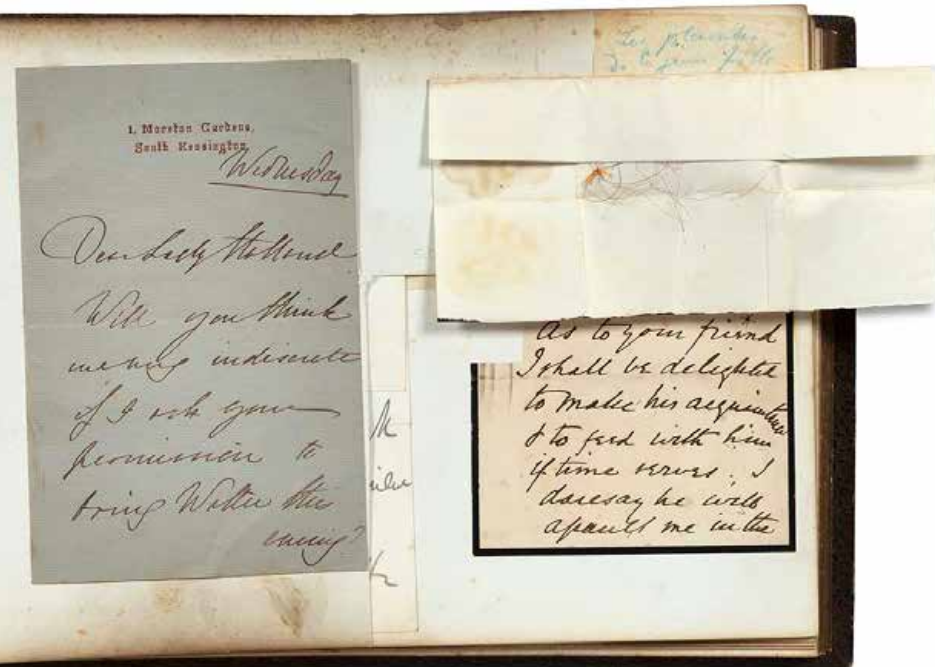 1, Moreton Gardens,
South Kensington
Wednesday
Dear Lady Holland
Will you think
me indiscrete
if I ask your
permission to
bring Walter this
evening?
Les plaintes
de la jeune fille
As to your friend
I shall be delighted
to make his acquaintance
& to feed with him
if time serves. I
daresay he will
me in the